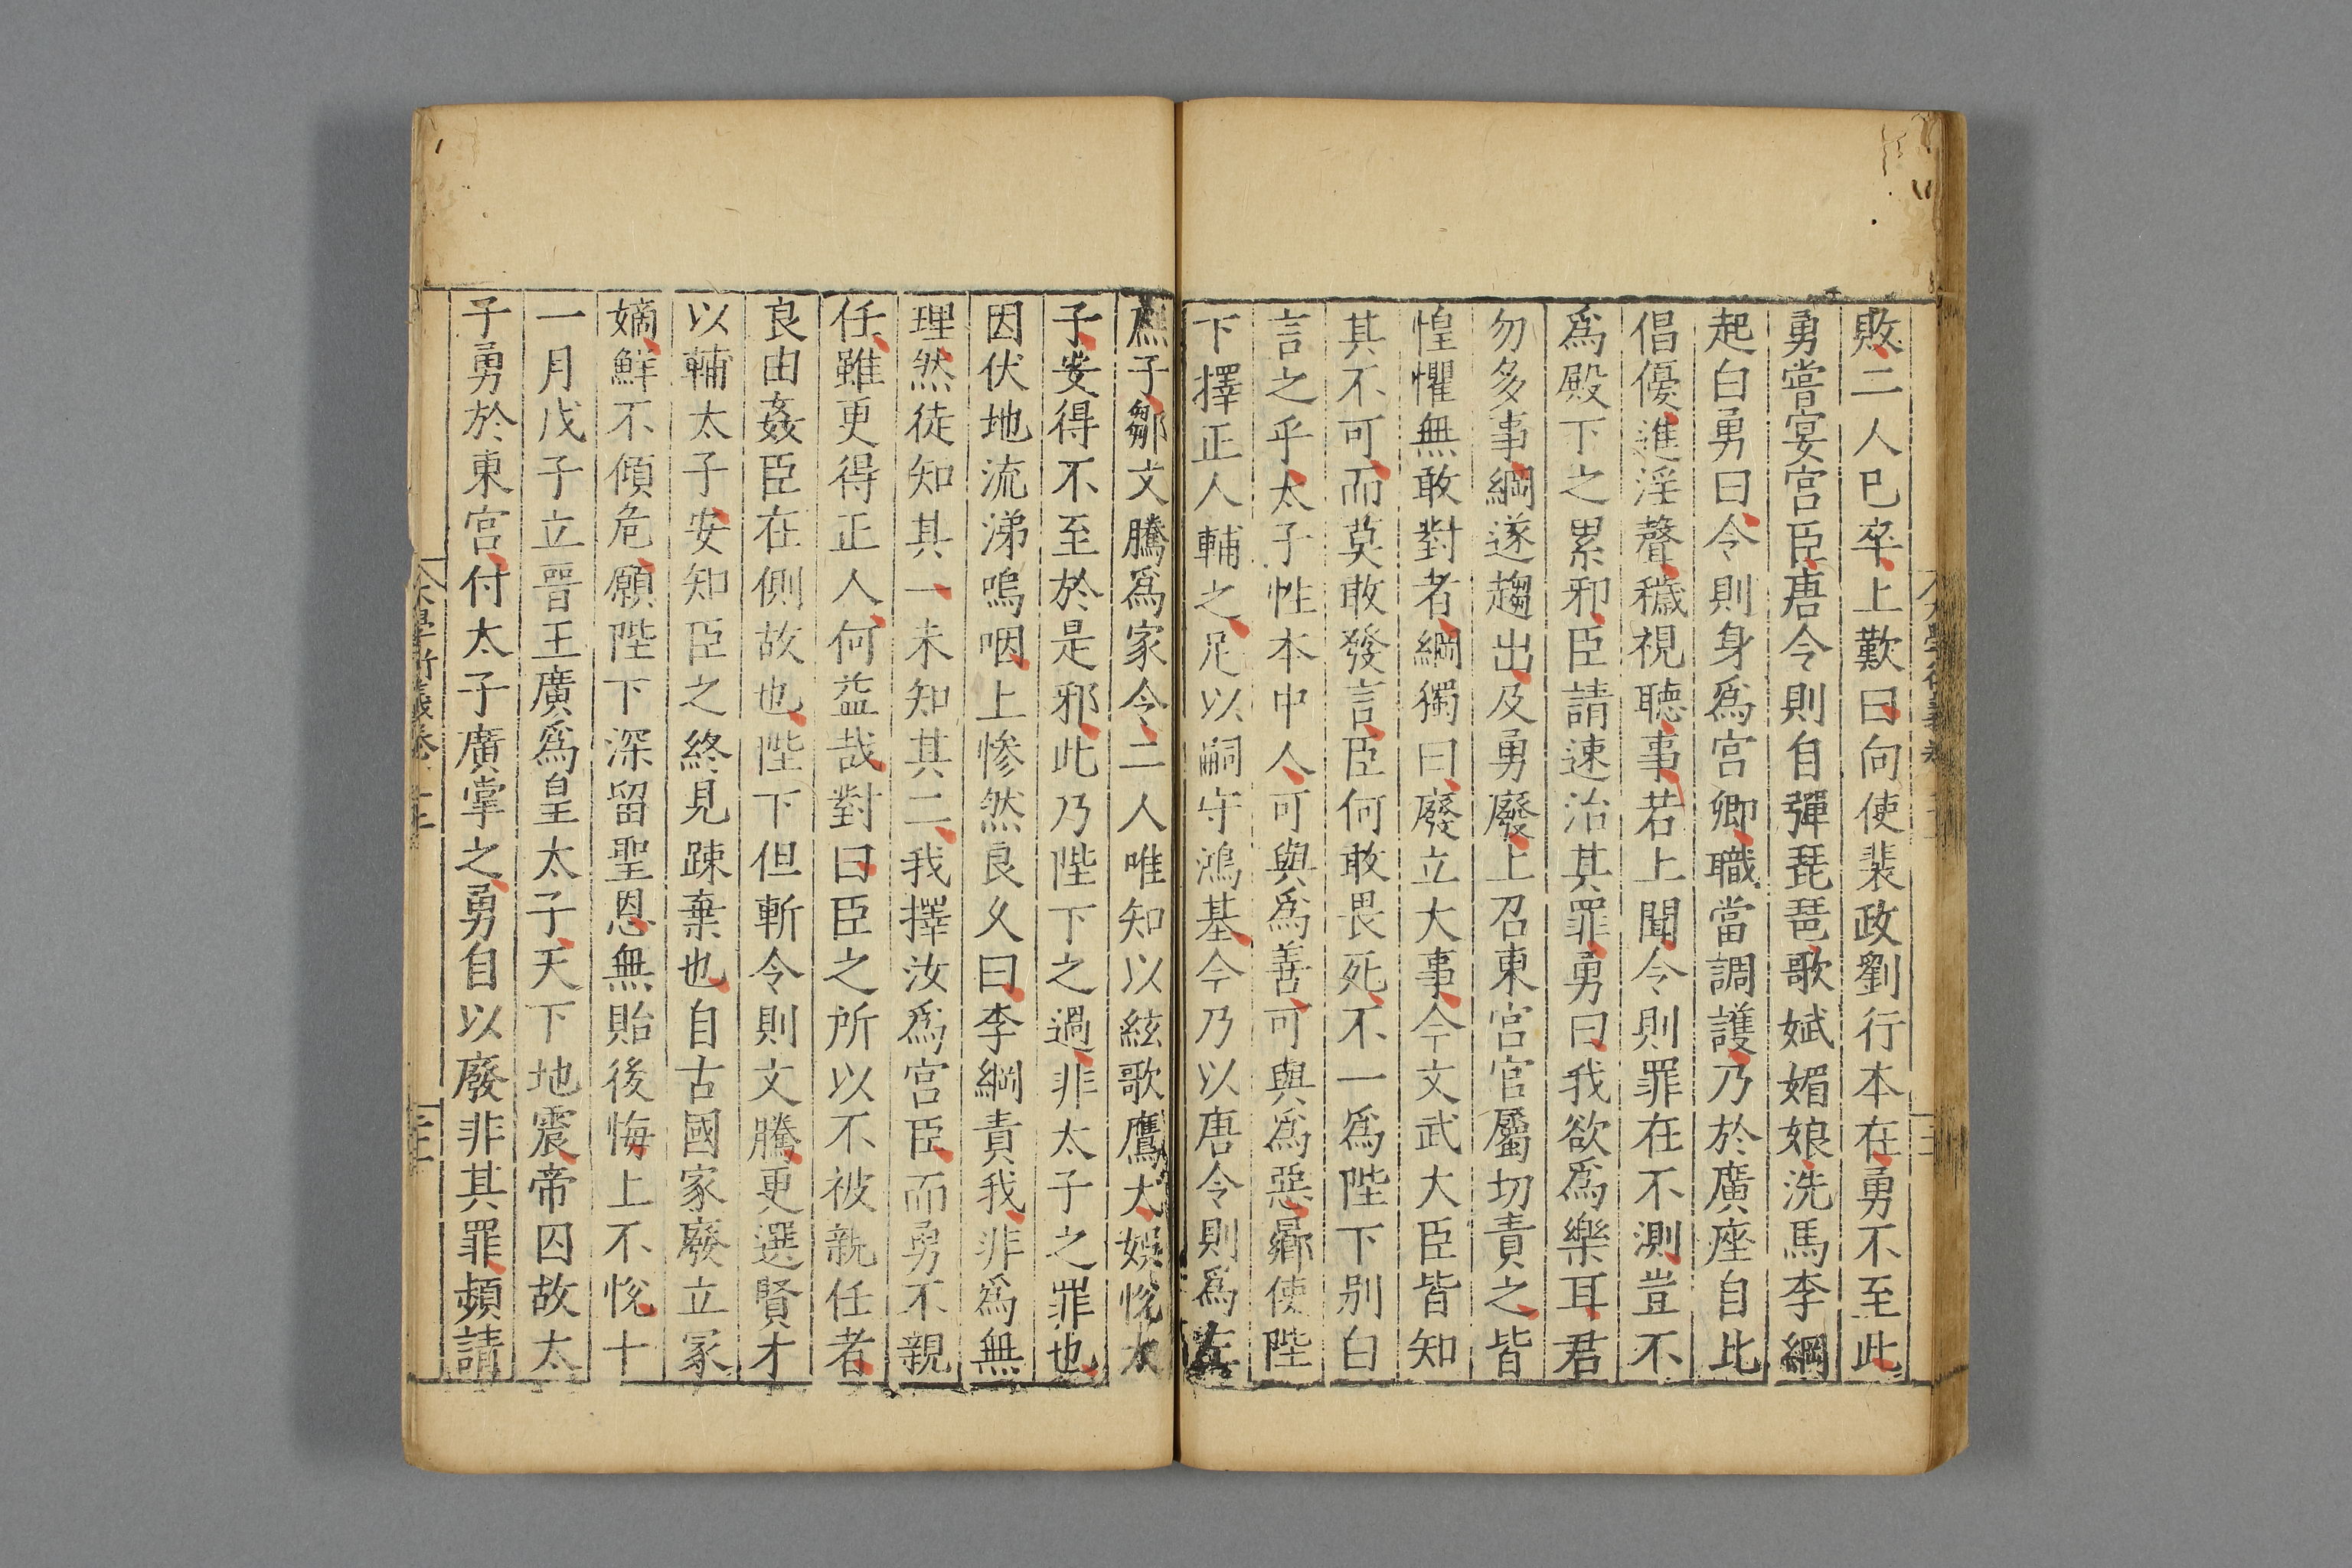 敗二人已卒上歎曰向使裴政劉行本在勇不至此
勇嘗宴宮臣唐令則自彈琵琶歌娬媚娘洗馬李綱
起白勇曰令則身爲宮卿職當調護乃於廣座自比
倡優進淫聲穢視聽事若上聞令則罪在不測豈不
爲殿下之累邪臣請速治其罪勇曰我欲爲樂耳君
勿多事綱遂趨出及勇廢上召東宮官屬切責之皆
惶懼無敢對者綱獨曰廢立大事今文武大臣皆知
其不可而莫敢發言臣何敢畏死不一爲陛下别白
言之乎太子性本中人可與爲善可與爲惡曏使陛
下擇正人輔之足以嗣守鴻基今乃以唐令則爲左
庶子鄒文騰爲家令二人唯知以絃歌鷹犬娛悅太
子安得不至於是邪此乃陛下之過非太子之罪也
因伏地流涕嗚咽上慘然良久曰李綱責我非爲無
理然徒知其一未知其二我擇汝爲宮臣而勇不親
任雖更得正人何益哉對曰臣之所以不被親任者
良由姦臣在側故也陛下但斬令則文騰更選賢才
以輔太子安知臣之終見踈棄也自古國家廢立冢
嫡鮮不傾危願陛下深留聖恩無貽後悔上不悅十
一月戊子立晉王廣爲皇太子天下地震帝囚故太
子勇於東宮付太子廣掌之勇自以廢非其罪頻請